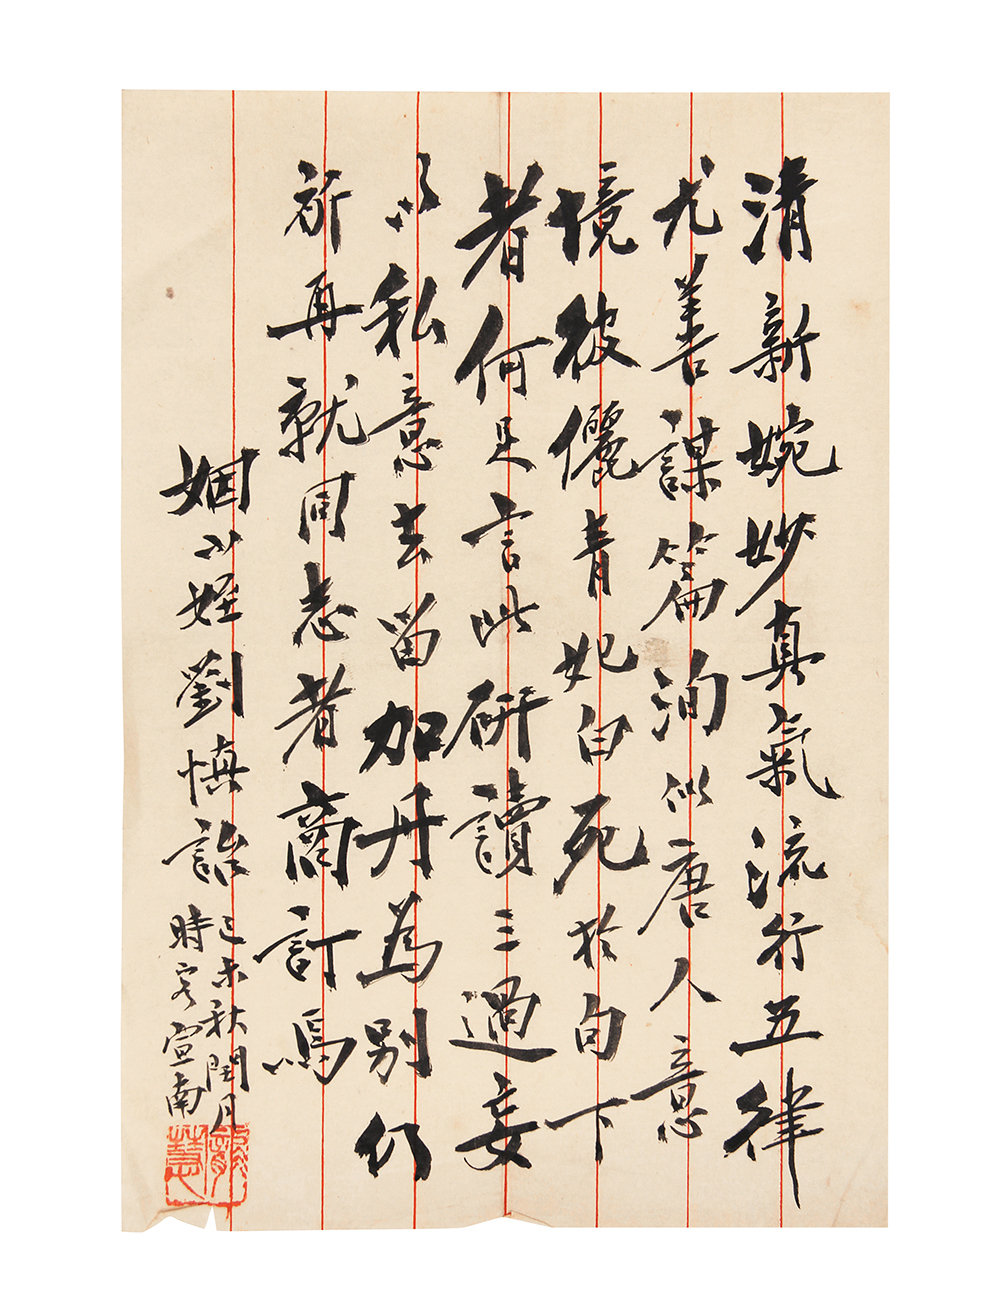 清新婉妙真氣流行五律
尤善謀篇洵似唐人意
境彼儷青妃白死於句下
者何足言此研讀三過妄
以私意去留加丹為別仍
祈再就同志者商訂焉
姻小姪劉慎詒
己未秋閏月
時客宣南